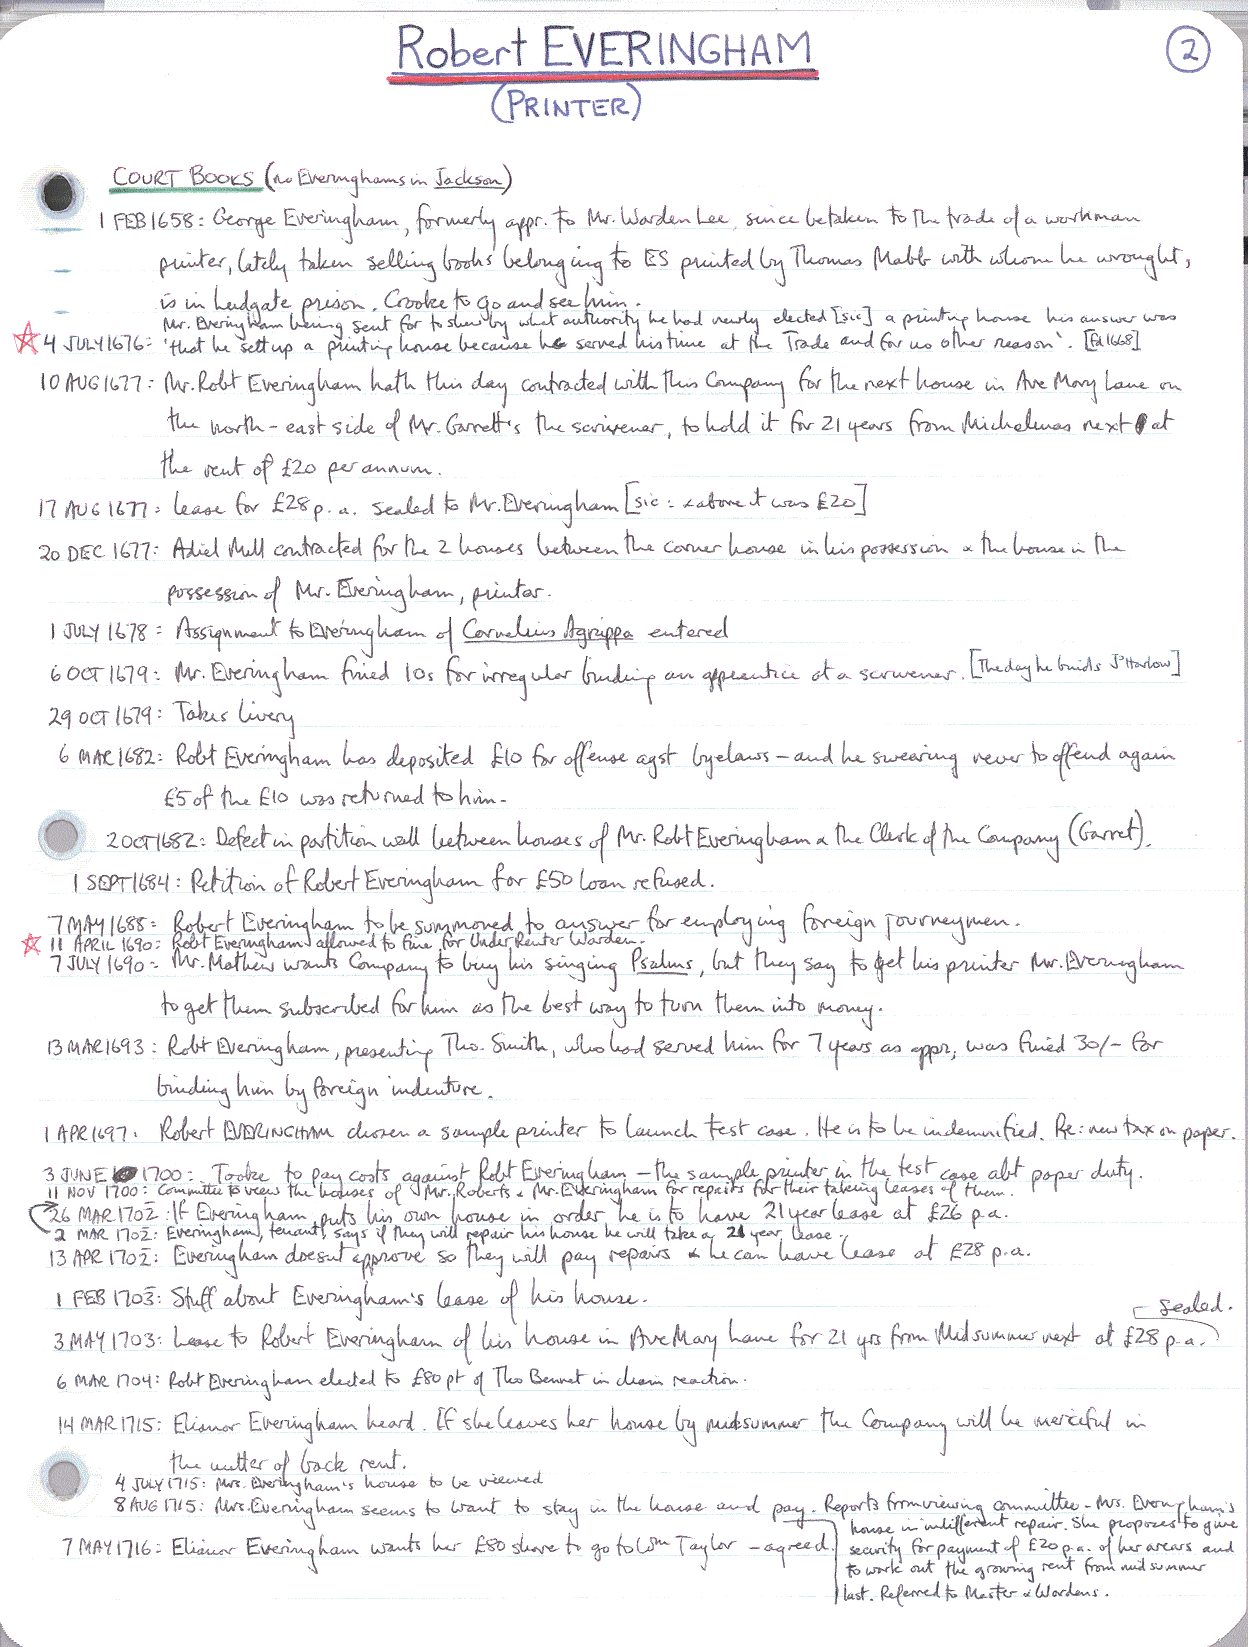 Robert EVERINGHAM
2
(PRINTER)
COURT BOOKS (no Everinghams in Jackson)
1 FEB 1658: George Everingham, formerly appr. to Mr. Warden Lee, since betaken to the trade of a workman
printer, lately taken selling books belonging to ES printed by Thomas Mabb with whom he wrought,
is in Ludgate prison. Crooke to go and see him.
Mr. Everingham being sent for to shew by what authority he had newly elected [sic] a printing house his answer was
4 JULY 1676: 'that he sett up a printing house because he served his time at the Trade and for no other reason'. [fd 1668]
10 AUG 1677: Mr. Robt Everingham hath this day contracted with this Company for the next house in Ave Mary Lane on
the north-east side of Mr. Garrett's the scrivener, to hold it for 21 years from Michelmas next at
the rent of £20 per annum.
17 AUG 1677: Lease for £28 p.a. sealed to Mr. Everingham [sic: & above it was £20]
20 DEC 1677: Adiel Mill contracted for the 2 houses between the corner house in his possession & the house in the
possession of Mr. Everingham, printer.
1 JULY 1678: Assignment to Everingham of Cornelius Agrippa entered
6 OCT 1679: Mr. Everingham fined 10s for irregular binding an apprentice at a scrivener. [The day he binds Js Harlow]
29 OCT 1679: Takes livery
6 MAR 1682: Robt Everingham has deposited £10 for offense agst byelaws - and he swearing never to offend again
£5 of the £10 was returned to him.
2 OCT 1682: Defect in partition wall between houses of Mr. Robt Everingham & the Clerk of the Company (Garret).
1 SEPT 1684: Petition of Robert Everingham for £50 loan refused.
7 MAY 1688: Robert Everingham to be summoned to answer for employing foreign journeymen.
11 APRIL 1690: Robt Everingham allowed to fine for Under Renter Warden.
7 JULY 1690: Mr. Mathew wants Company to buy his singing Psalms, but they say to get his printer Mr. Everingham
to get them subscribed for him as the best way to turn them into money.
13 MAR 1693: Robt Everingham, presenting Tho. Smith, who had served him for 7 years as appr, was fined 30/- for
binding him by foreign indenture.
1 APR 1697: Robert EVERINGHAM chosen a sample printer to launch test case. He is to be indemnified. Re: new tax on paper.
3 JUNE 1700: Tooke to pay costs against Robt Everingham - the sample printer in the test case abt paper duty.
11 NOV 1700: Committee to view the houses of Mr. Roberts & Mr. Everingham for repairs for their taking leases of them.
26 MAR 1702: If Everingham puts his own house in order he is to have 21 year lease at £26 p.a.
2 MAR 1702: Everingham, tenant, says if they will repair his house he will take a 21 year lease.
13 APR 1702: Everingham doesn't approve so they will pay repairs & he can have lease at £28 p.a.
1 FEB 1703: Stuff about Everingham's lease of his house.
sealed.
3 MAY 1703: Lease to Robert Everingham of his house in Ave Mary Lane for 21 yrs from Midsummer next at £28 p.a.
6 MAR 1704: Robt Everingham elected to £80 pt of Tho Bennet in chain reaction.
14 MAR 1715: Elianor Everingham heard. If she leaves her house by midsummer the Company will be merciful in
the matter of back rent.
4 JULY 1715: Mrs. Everingham's house to be viewed
8 AUG 1715: Mrs. Everingham seems to want to stay in the house and pay. Reports from viewing committee - Mrs. Everingham's
house in indifferent repair. She proposes to give
security for payment of £20 p.a. of her arears and
to work out the growing rent from midsummer
last. Referred to Master & Wardens.
7 MAY 1716: Elianor Everingham wants her £80 share to go to Wm Taylor - agreed.